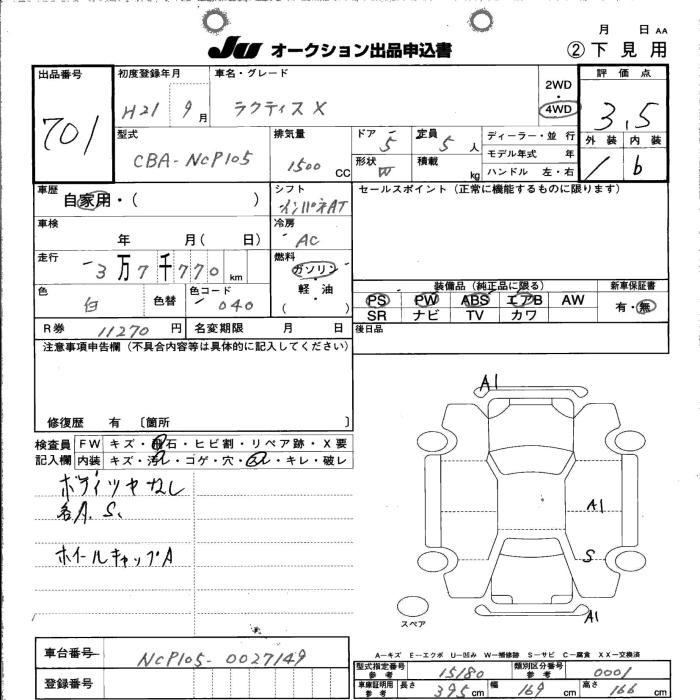 月 日 AA
JU オークション出品申込書 ②下見用
出品番号 初度登録年月 車名・グレード 2WD・4WD 評価点
701 H21 9月 ラクティス X 3.5
型式 排気量 ドア 定員 ディーラー・並行 外装 内装
CBA-NCP105 1500 CC 5 5人 モデル年式 年 1 b
形状 積載 ハンドル 左・右
W kg
車歴 自家用・( ) シフト セールスポイント(正常に機能するものに限ります)
インパネAT
車検 年 月( 日) 冷房
AC
走行 3万7千770km 燃料
ガソリン・軽油
( )
色 白 色替 色コード 040
装備品(純正品に限る) 新車保証書
PS PW ABS エアB AW 有・無
SR ナビ TV カワ
R券 11270円 名変期限 月 日 後日品
注意事項申告欄(不具合内容等は具体的に記入してください)
修復歴 有 〔箇所 〕
検査員 FW キズ・飛石・ヒビ割・リペア跡・X要
記入欄 内装 キズ・汚レ・コゲ・穴・スレ・キレ・破レ
ボディツヤなし
各A.S.
ホイールキャップA
A1
A1
S
A1
スペア
A-キズ E-エクボ U-凹み W-補修跡 S-サビ C-腐食 XX-交換済
車台番号 NCP105-0027149
登録番号
型式指定番号 参考 15180 類別区分番号 参考 0001
車庫証明用 参考 長さ 395cm 幅 169cm 高さ 166cm